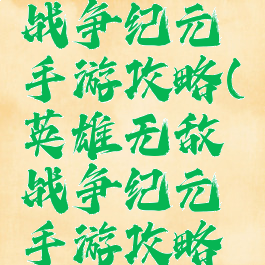 战争纪元
手游攻略(
英雄无敌
战争纪元
手游攻略